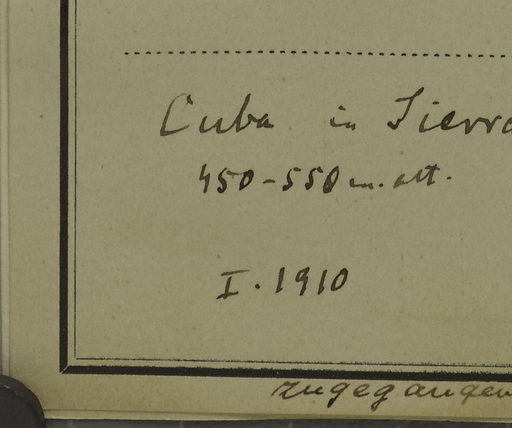 Cuba in Sierra
450-550 m. alt.
I. 1910
zugegangen